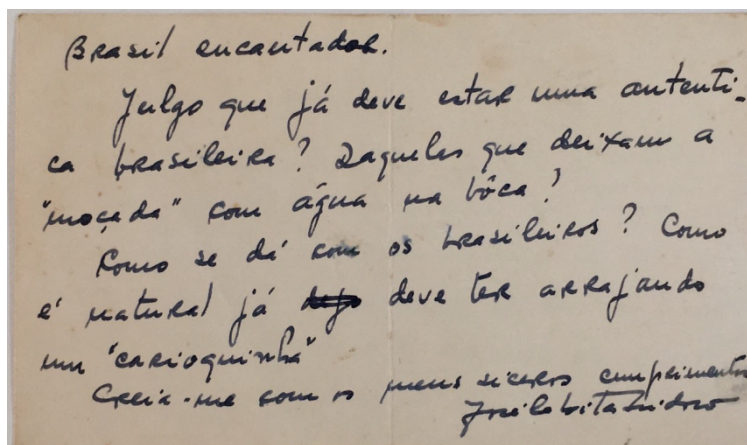 Brasil encantador.
Julgo que já deve estar uma autenti-
ca brasileira? Daquelas que deixam a
"moçada" com água na bôca!
Como se dá com os brasileiros? Como
é natural já deve ter arrajando
um "carioquinha"
Creia-me com os meus siceros cumprimentos